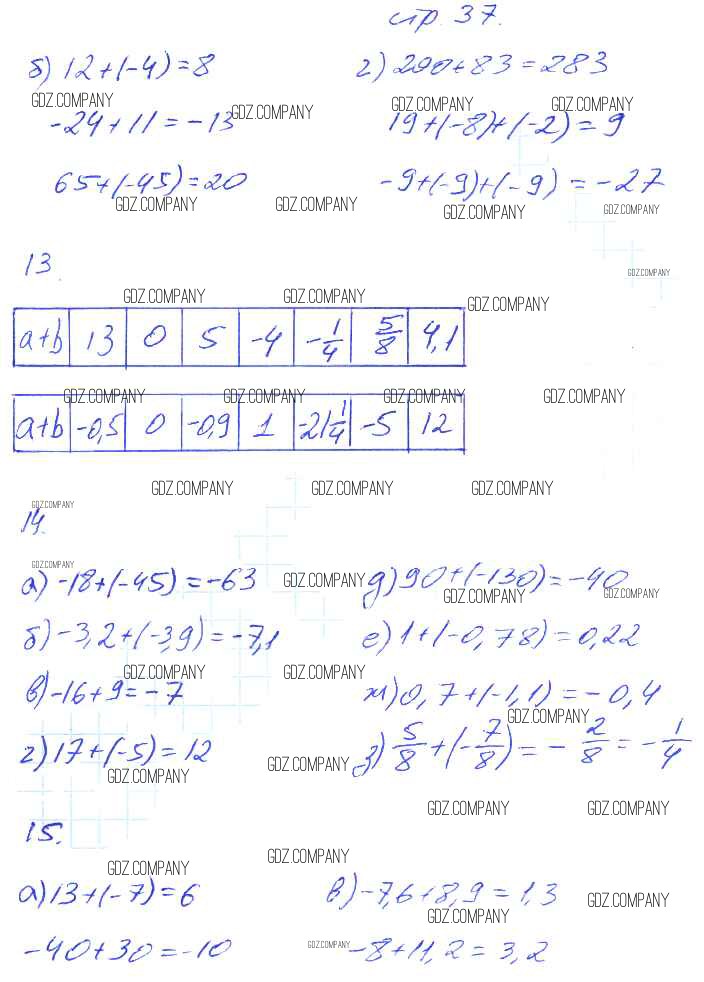 стр. 37.
б) 12+(-4)=8 г) 200+83=283
GDZ.COMPANY GDZ.COMPANY GDZ.COMPANY GDZ.COMPANY
-24+11=-13 19+(-8)+(-2)=9
65+(-45)=20 -9+(-9)+(-9)=-27
GDZ.COMPANY GDZ.COMPANY GDZ.COMPANY GDZ.COMPANY
13.
GDZ.COMPANY
GDZ.COMPANY GDZ.COMPANY GDZ.COMPANY
a+b 13 0 5 -4 -1/4 5/8 4,1
GDZ.COMPANY GDZ.COMPANY GDZ.COMPANY GDZ.COMPANY
a+b -0,5 0 -0,9 1 -21 1/4 -5 12
GDZ.COMPANY GDZ.COMPANY GDZ.COMPANY
GDZ.COMPANY
14.
GDZ.COMPANY
а) -18+(-45)=-63 GDZ.COMPANY д) 90+(-130)=-40
GDZ.COMPANY GDZ.COMPANY
б) -3,2+(-3,9)=-7,1 е) 1+(-0,78)=0,22
GDZ.COMPANY GDZ.COMPANY
в) -16+9=-7 ж) 0,7+(-1,1)=-0,4
GDZ.COMPANY
г) 17+(-5)=12 з) 5/8+(-7/8)=-2/8=-1/4
GDZ.COMPANY GDZ.COMPANY
GDZ.COMPANY GDZ.COMPANY
15.
GDZ.COMPANY GDZ.COMPANY
а) 13+(-7)=6 в) -7,6+8,9=1,3
GDZ.COMPANY GDZ.COMPANY
-40+30=-10 GDZ.COMPANY -8+11,2=3,2